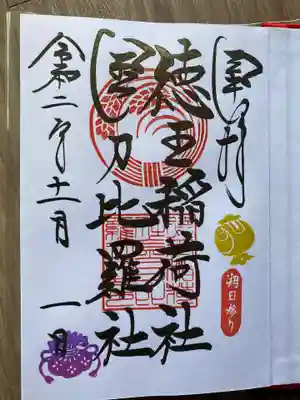 奉拝
朔日参り
徳王稲荷社
金刀比羅社
令和二年十一月一日